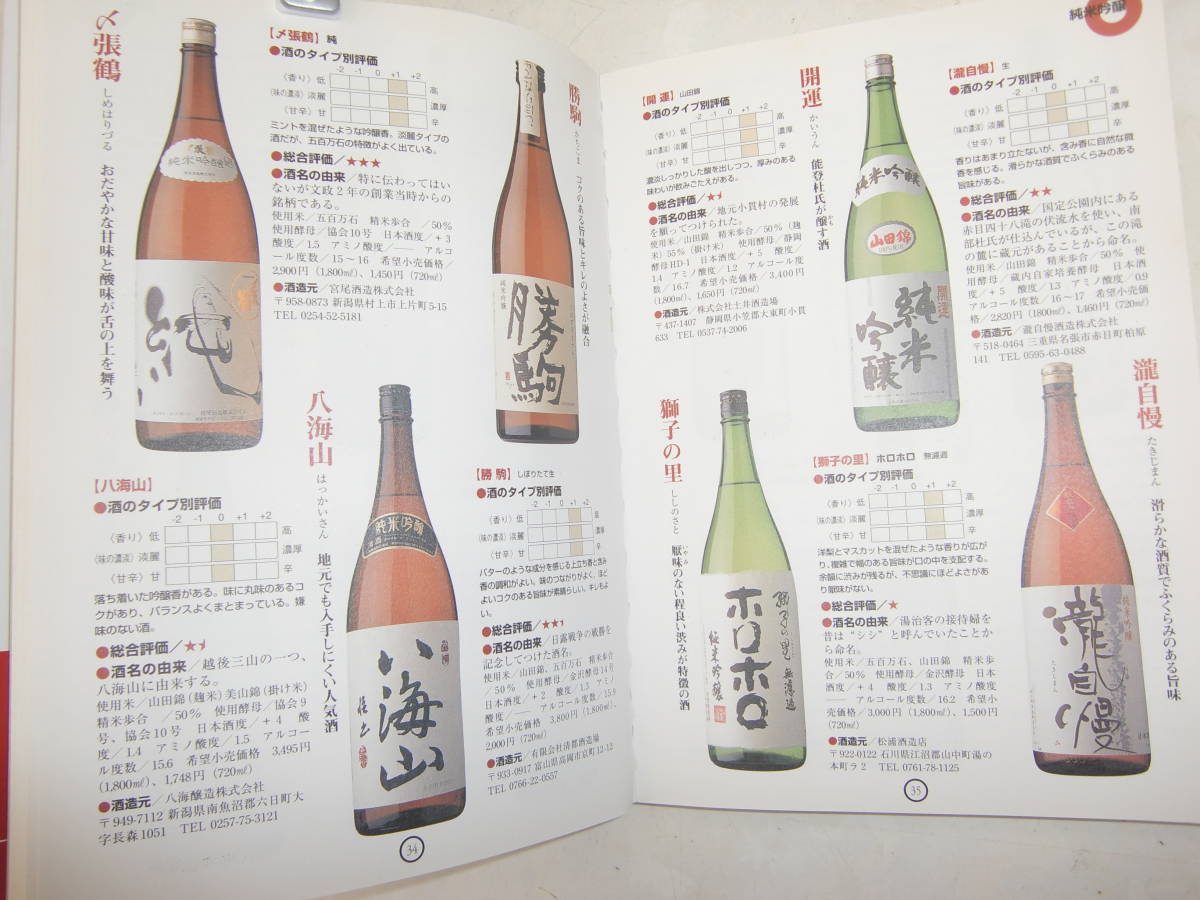 〆張鶴
しめはりづる
おだやかな甘味と酸味が舌の上を舞う
【〆張鶴】純
●酒のタイプ別評価
-2 -1 0 +1 +2
〈香り〉低 高
〈味の濃淡〉淡麗 濃厚
〈甘辛〉甘 辛
ミントを混ぜたような吟醸香。淡麗タイプの
酒だが、五百万石の特徴がよく出ている。
●総合評価/★★★
●酒名の由来/特に伝わってはい
ないが文政2年の創業当時からの
銘柄である。
使用米/五百万石 精米歩合 /50%
使用酵母/協会10号 日本酒度/+3
酸度/1.5 アミノ酸度/—— アルコー
ル度数/15~16 希望小売価格/
2,900円(1,800㎖)、1,450円(720㎖)
●酒造元/宮尾酒造株式会社
〒958-0873 新潟県村上市上片町5-15
TEL 0254-52-5181
純米吟醸
純
勝駒
かちこま
コクのある旨味とキレのよさが融合
純米吟醸
勝駒
【勝 駒】しぼりたて生
●酒のタイプ別評価
-2 -1 0 +1 +2
〈香り〉低 高
〈味の濃淡〉淡麗 濃厚
〈甘辛〉甘 辛
バターのような成分を感じる上立ち香と含み
香の調和がよい。味のつながりがよく、ほど
よいコクのある旨味が素晴らしい。キレもよ
い。
●総合評価/★★
●酒名の由来/日露戦争の戦勝を
記念してつけた酒名。
使用米/山田錦、五百万石 精米歩合
/50% 使用酵母/金沢酵母14号
日本酒度/+2 酸度/1.3 アミノ
酸度/—— アルコール度数/15.9
希望小売価格 3,800円(1,800㎖)、
2,000円(720㎖)
●酒造元/有限会社清都酒造場
〒933-0917 富山県高岡市京町12-12
TEL 0766-22-0557
八海山
はっかいさん
地元でも入手しにくい人気酒
【八海山】
●酒のタイプ別評価
-2 -1 0 +1 +2
〈香り〉低 高
〈味の濃淡〉淡麗 濃厚
〈甘辛〉甘 辛
落ち着いた吟醸香がある。味に丸味のあるコ
クがあり、バランスよくまとまっている。嫌
味のない酒。
●総合評価/★
●酒名の由来/越後三山の一つ、
八海山に由来する。
使用米/山田錦(麹米)美山錦(掛け米)
精米歩合 /50% 使用酵母/協会9
号、協会10号 日本酒度/+4 酸
度/1.4 アミノ酸度/1.5 アルコー
ル度数/15.6 希望小売価格 3,495円
(1,800㎖)、1,748円(720㎖)
●酒造元/八海醸造株式会社
〒949-7112 新潟県南魚沼郡六日町大
字長森1051 TEL 0257-75-3121
純米吟醸
清酒
八海山
34
純米吟醸
開運
かいうん
能登杜氏が醸す酒
かも
【開 運】山田錦
●酒のタイプ別評価
-2 -1 0 +1 +2
〈香り〉低 高
〈味の濃淡〉淡麗 濃厚
〈甘辛〉甘 辛
濃淡しっかりした酸を出しつつ、厚みのある
味わいが飲みごたえがある。
●総合評価/★
●酒名の由来/地元小貫村の発展
を願ってつけられた。
使用米/山田錦 精米歩合/50%(麹
米)55%(掛け米) 使用酵母/静岡
酵母HD-1 日本酒度/+5 酸度/
1.4 アミノ酸度/1.2 アルコール度
数/16.7 希望小売価格/3,400円
(1,800㎖)、1,650円(720㎖)
●酒造元/株式会社土井酒造場
〒437-1407 静岡県小笠郡大東町小貫
633 TEL 0537-74-2006
純米吟醸
山田錦
開運
純米
吟醸
【瀧自慢】生
●酒のタイプ別評価
-2 -1 0 +1 +2
〈香り〉低 高
〈味の濃淡〉淡麗 濃厚
〈甘辛〉甘 辛
香りはあまり立たないが、含み香に自然な微
香を感じる。滑らかな酒質でふくらみのある
旨味がある。
●総合評価/★★
●酒名の由来/国定公園内にある
赤目四十八滝の伏流水を使い、南
部杜氏が仕込んでいるが、この滝
の麓に蔵元があることから命名。
使用米/山田錦 精米歩合/50% 使
用酵母/蔵内自家培養酵母 日本酒
度/+5 酸度/1.3 アミノ酸度/0.9
アルコール度数/16~17 希望小売価
格/2,820円(1800㎖)、1,460円(720㎖)
●酒造元/瀧自慢酒造株式会社
〒518-0464 三重県名張市赤目町柏原
141 TEL 0595-63-0488
瀧自慢
たきじまん
滑らかな酒質でふくらみのある旨味
純米吟醸
瀧自慢
獅子の里
ししのさと
厭味のない程良い渋みが特徴の酒
いやみ
【獅子の里】ホロホロ 無濾過
●酒のタイプ別評価
-2 -1 0 +1 +2
〈香り〉低 高
〈味の濃淡〉淡麗 濃厚
〈甘辛〉甘 辛
洋梨とマスカットを混ぜたような香りが広が
り、複雑で幅のある旨味が口の中を支配する。
余韻に渋みが残るが、不思議にほどよさがあ
り厭味がない。
●総合評価/★
●酒名の由来/湯治客の接待婦を
昔は“シシ”と呼んでいたことか
ら命名。
使用米/五百万石、山田錦 精米歩
合/50% 使用酵母/金沢酵母 日本
酒度/+4 酸度/1.3 アミノ酸度/
—— アルコール度数/16.2 希望小
売価格/3,000円(1,800㎖)、1,500円
(720㎖)
●酒造元/松浦酒造店
〒922-0122 石川県江沼郡山中町湯の
本町ラ2 TEL 0761-78-1125
獅子の里 無濾過
ホロホロ
純米吟醸
35